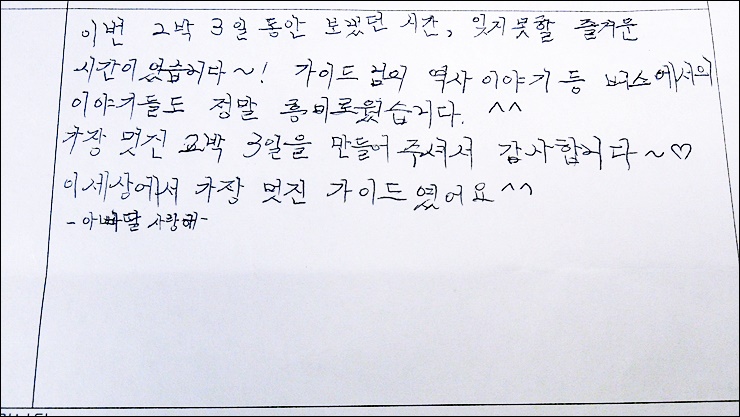 이번 2박 3일 동안 보냈던 시간, 잊지못할 즐거운
시간이었습니다~! 가이드님의 역사 이야기 등 버스에서의
이야기들도 정말 흥미로웠습니다. ^^
가장 멋진 2박 3일을 만들어주셔서 감사합니다~♡
이세상에서 가장 멋진 가이드였어요^^
- 아빠딸 사랑해 -